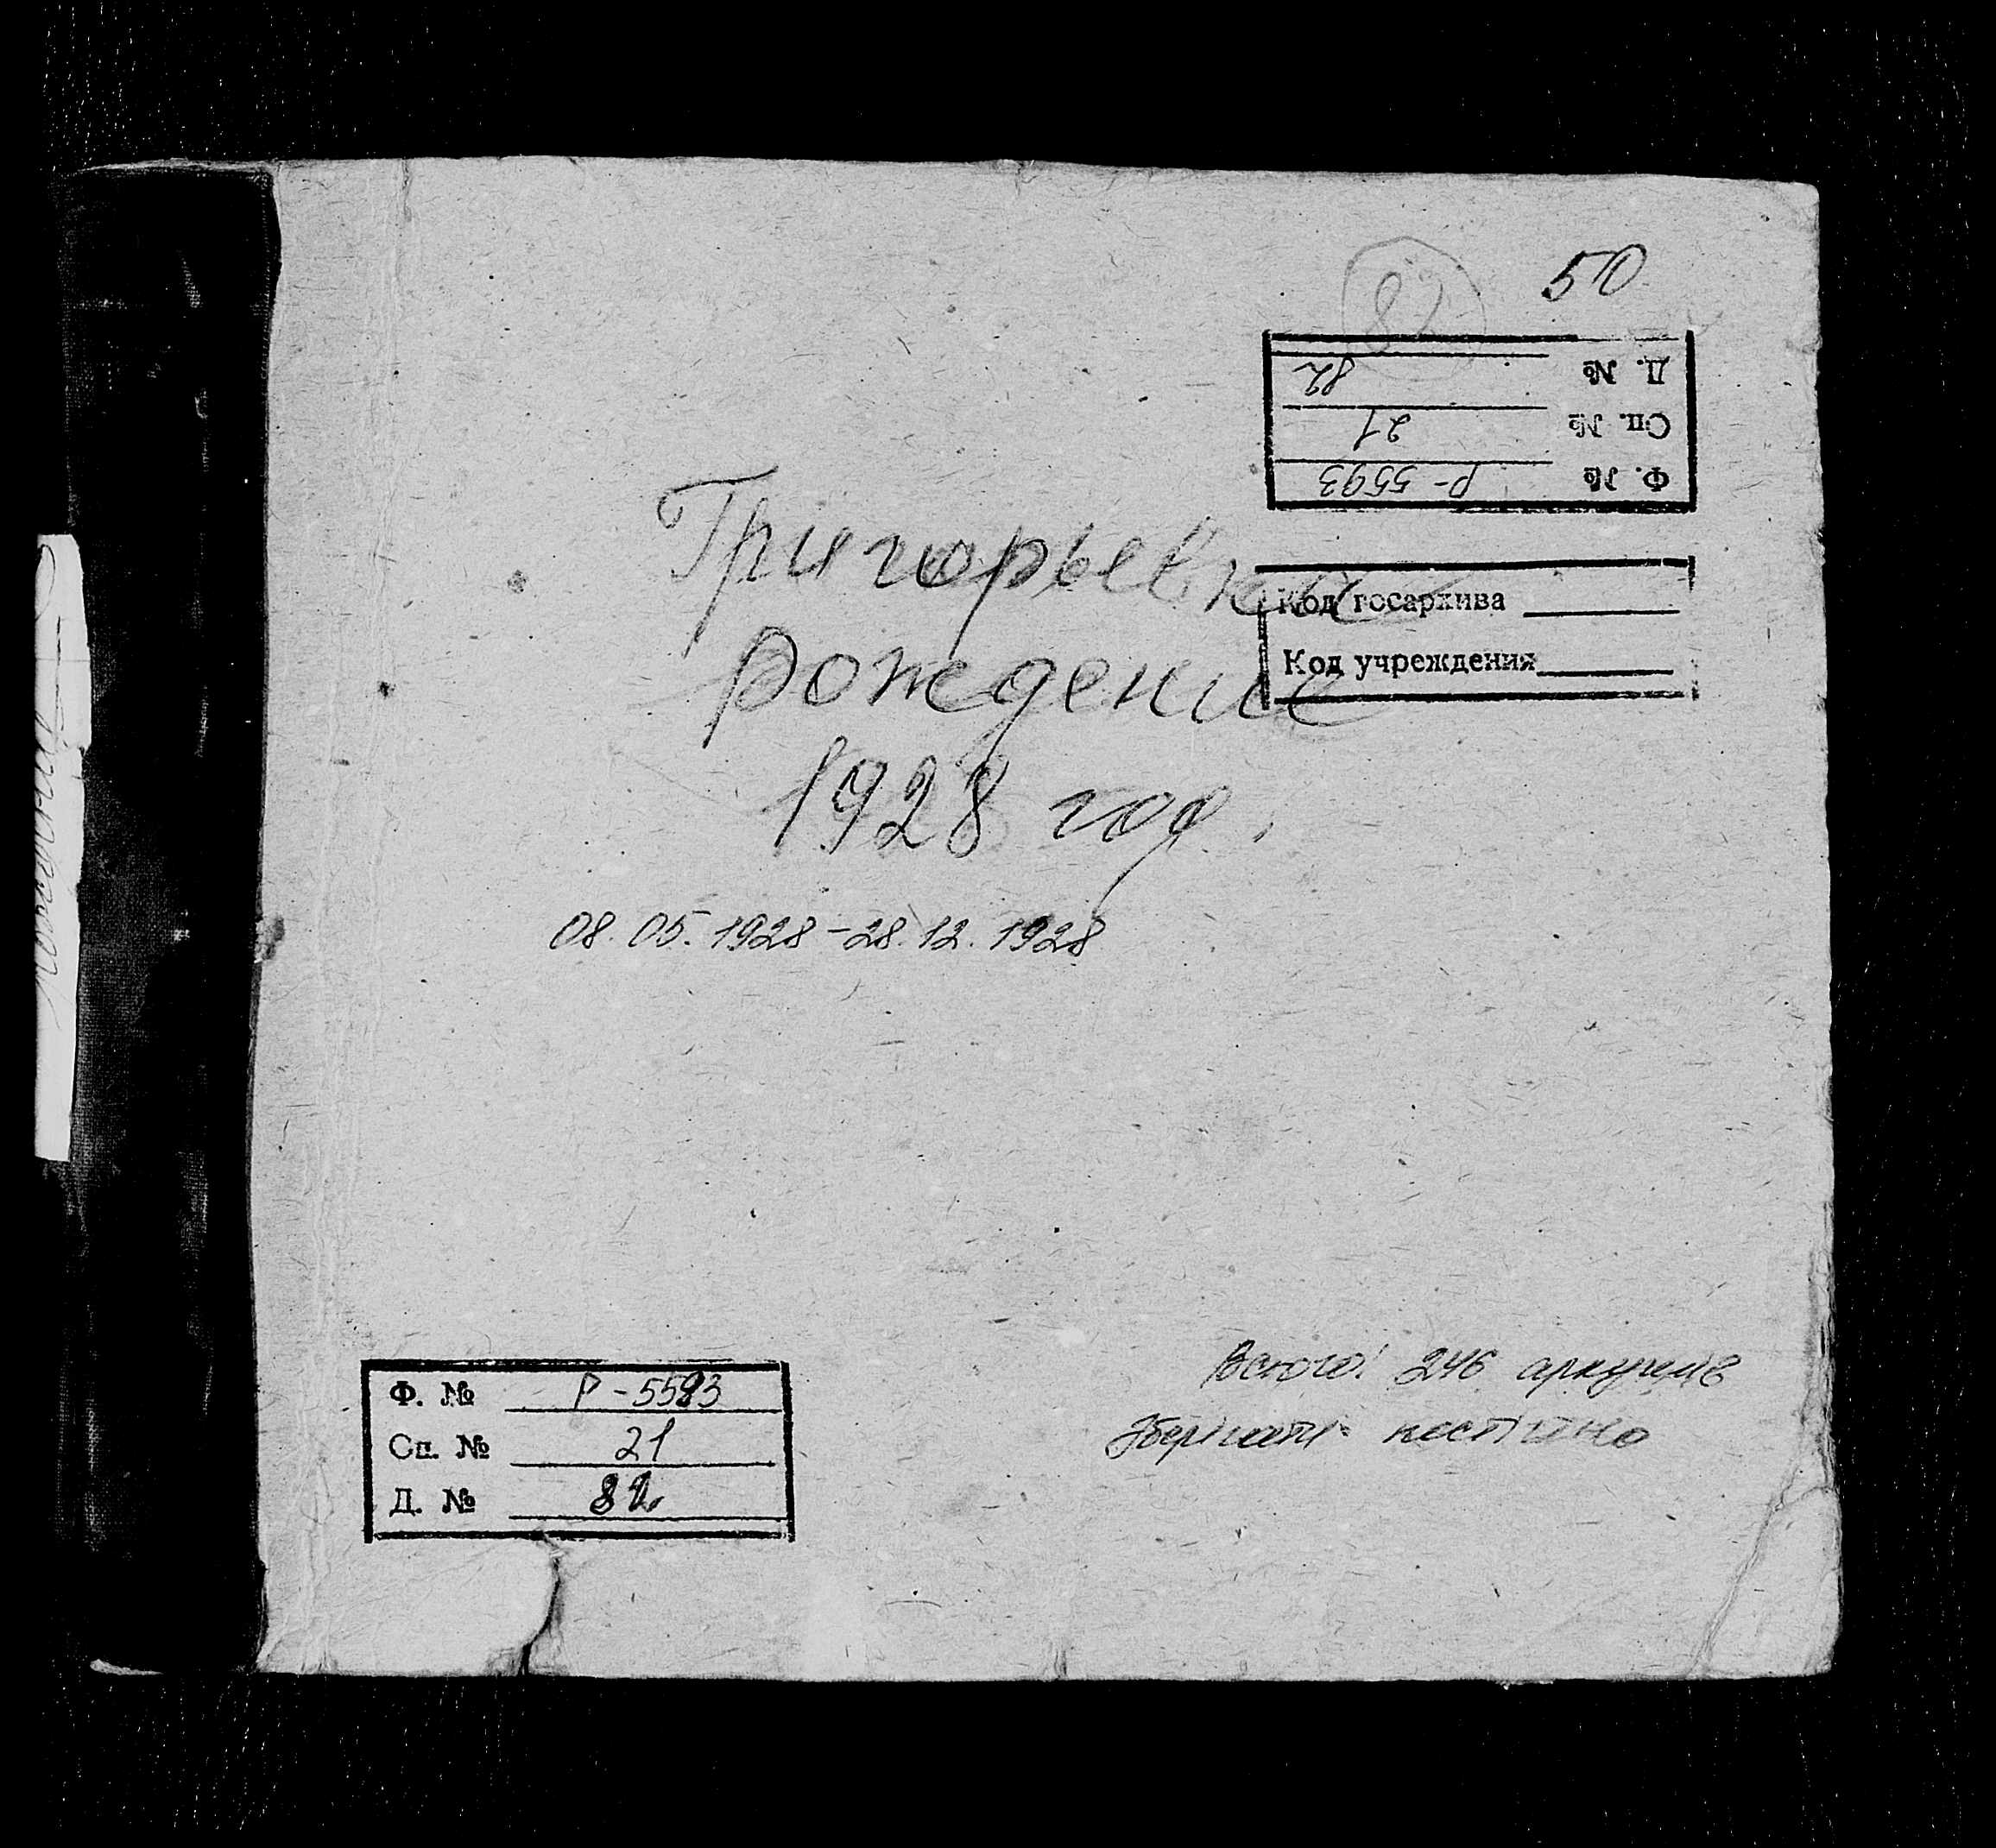 50
82
Д. № 82
Сп. № 21
Ф. № Р-5593
Григорьевка
Код госархива
рождение
Код учреждения
1928 год.
08.05.1928-28.12.1928
Ф. № Р-5593
Сп. № 21
Д. № 82
Всього: 246 аркушів
Зберігати постійно